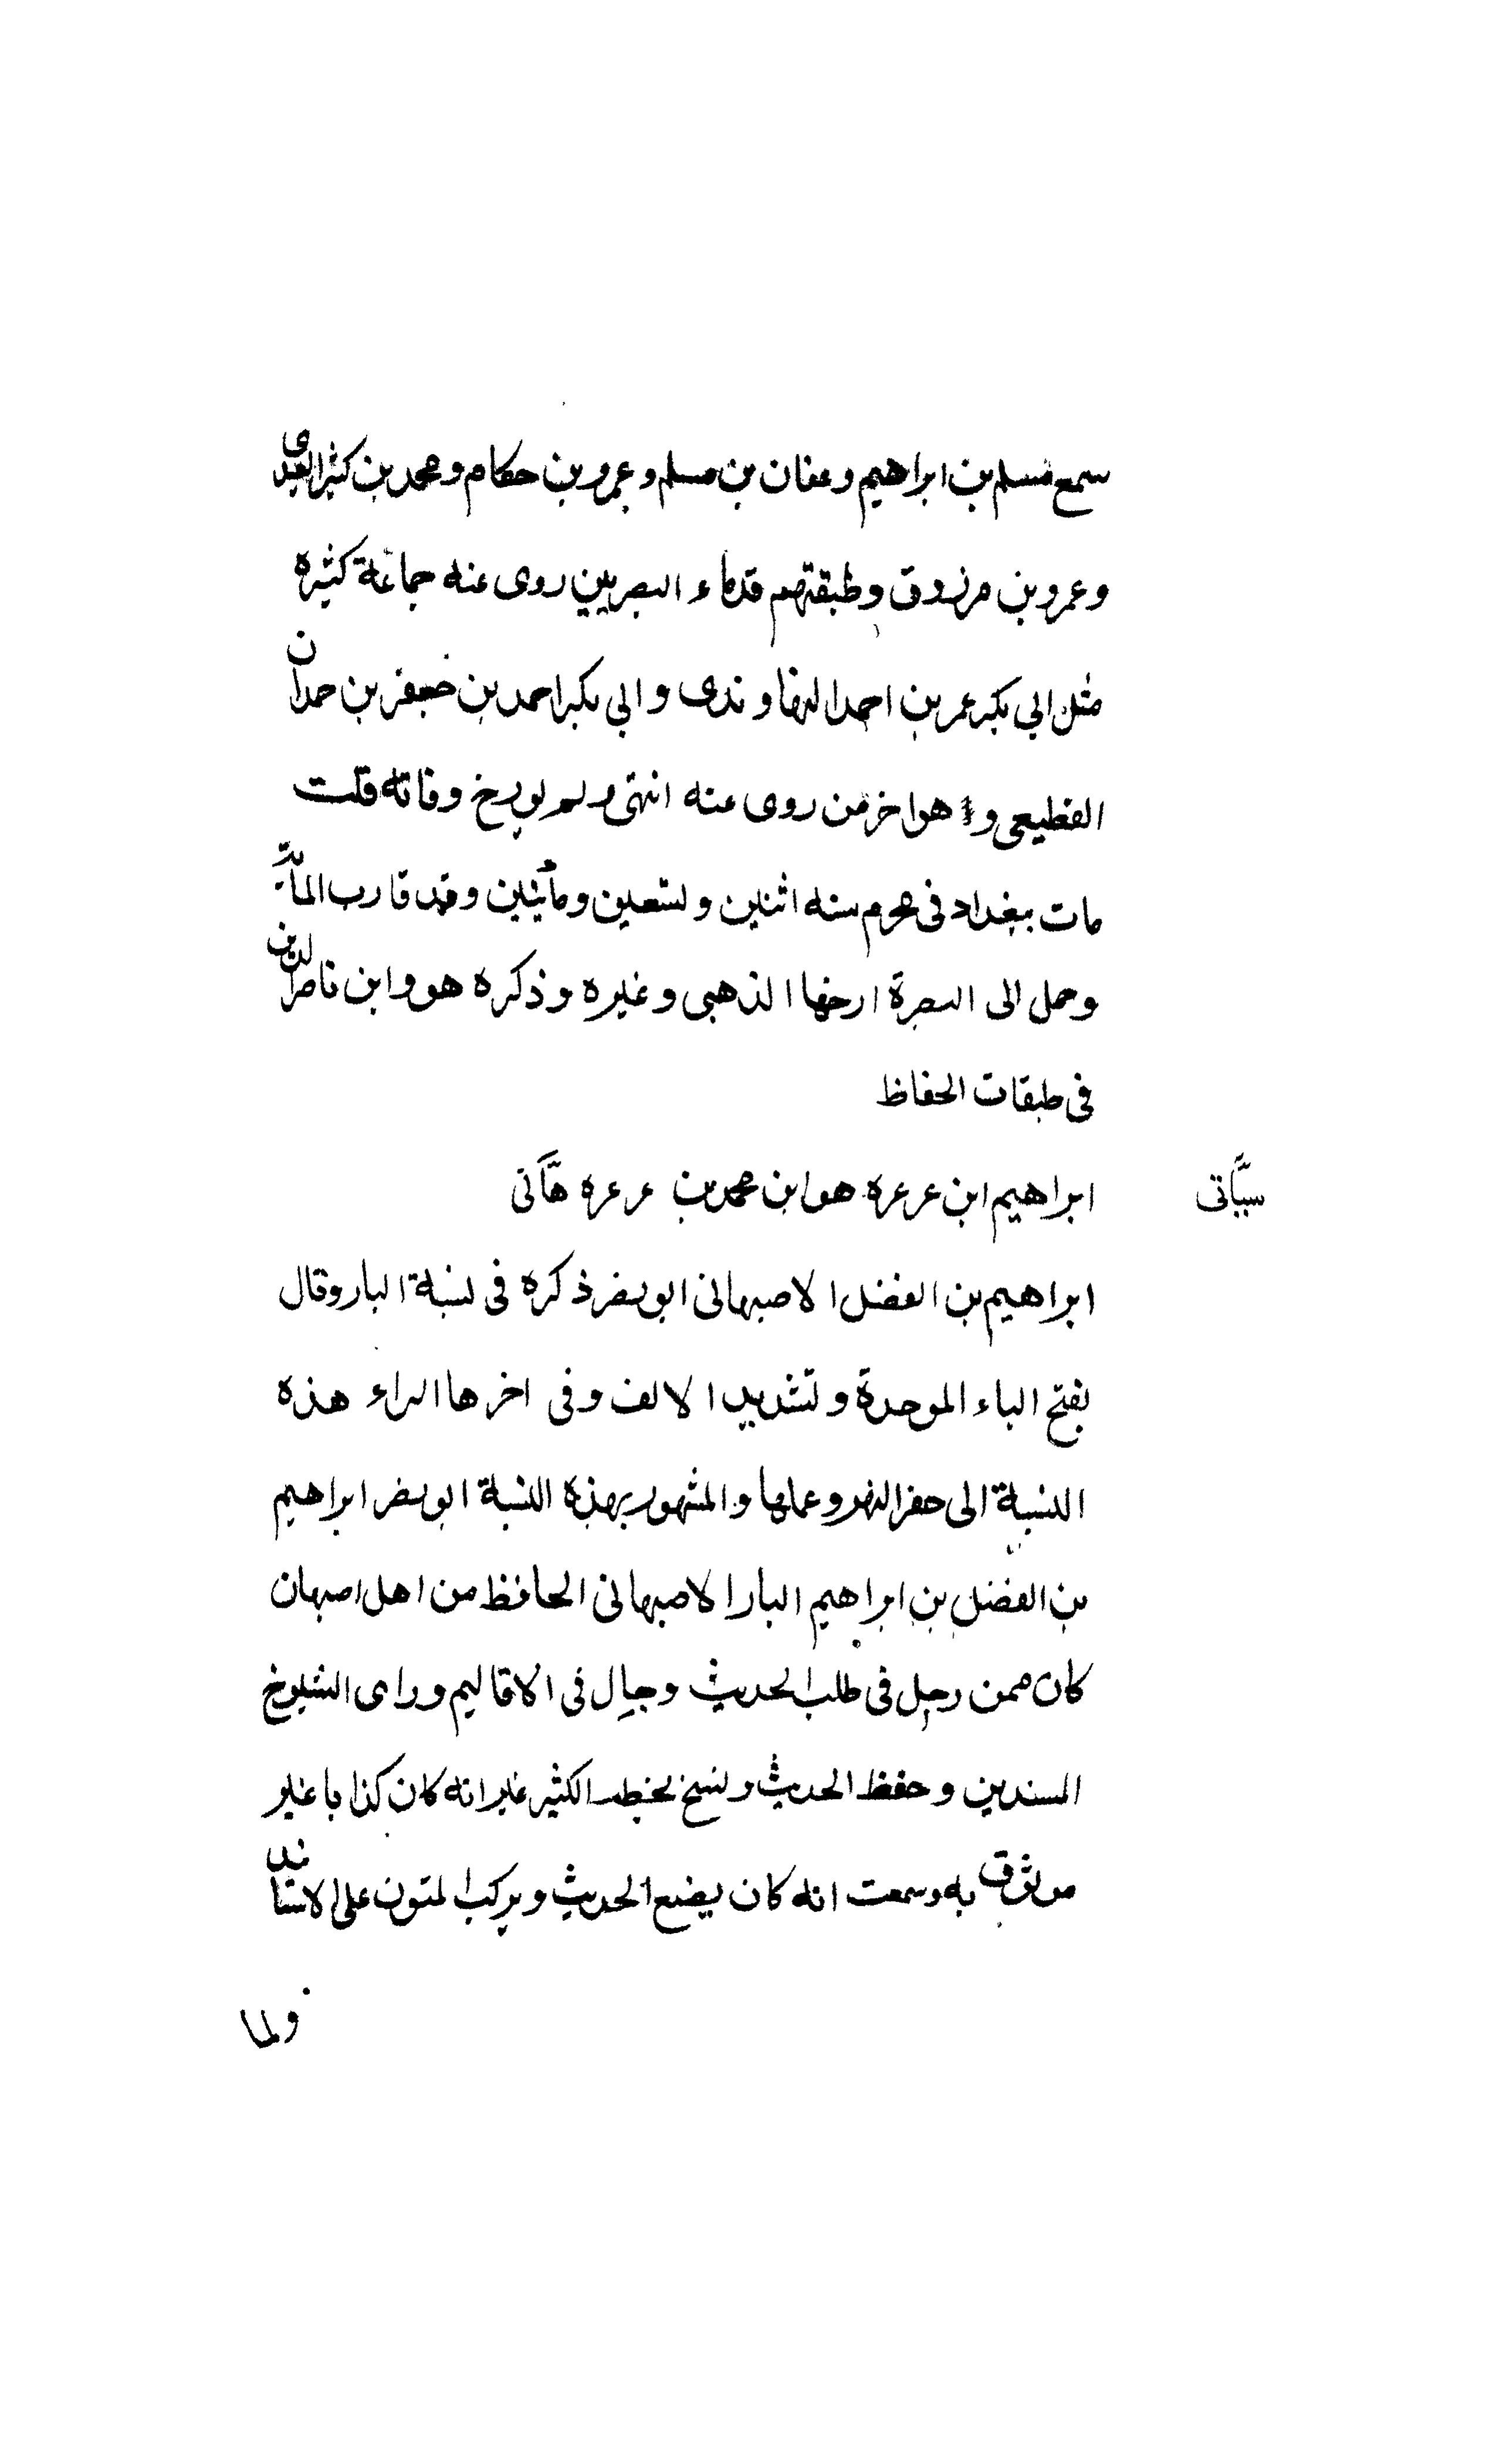 سمع مسلم بن ابراهيم وعفان بن مسلم وعمرو بن حكام ومحمد بن كثير العبدى
وعمرو بن مرزوق وطبقتهم قدماء البصريين روى عنه جماعة كثيره
مثل ابي بكر عمر بن احمد النهاوندى وابي بكر احمد بن جعفر بن حمدان
القطيعى وهو اخر من روى عنه انتهى ولم يورخ وفاته قلت
مات ببغداد فى محرم سنه اثنين وتسعين ومأتين وقد قارب المأية
وحمل الى البصرة ارخها الذهبى وغيره وذكره هو وابن ناصر الدين
فى طبقات الحفاظ
ابراهيم ابن عرعره هو ابن محمد بن عرعره
سيأتى
ابراهيم بن الفضل الاصبهانى ابو نصر ذكره فى نسبة البار وقال
بفتح الباء الموحدة وتشديد الالف وفى اخرها الراء هذه
النسبة الى حفر النهر وعملها والمشهور بهذه النسبة ابو نصر ابراهيم
بن الفضل بن ابراهيم البار الاصبهانى الحافظ من اهل اصبهان
كان ممن رحل فى طلب الحديث وجال فى الاقاليم وراى الشيوخ
المسندين وحفظ الحديث ونسخ بخطه الكثير غير انه كان كذابا غير
موثوق به وسمعت انه كان يضع الحديث ويركب المتون على الاسناند
ولما